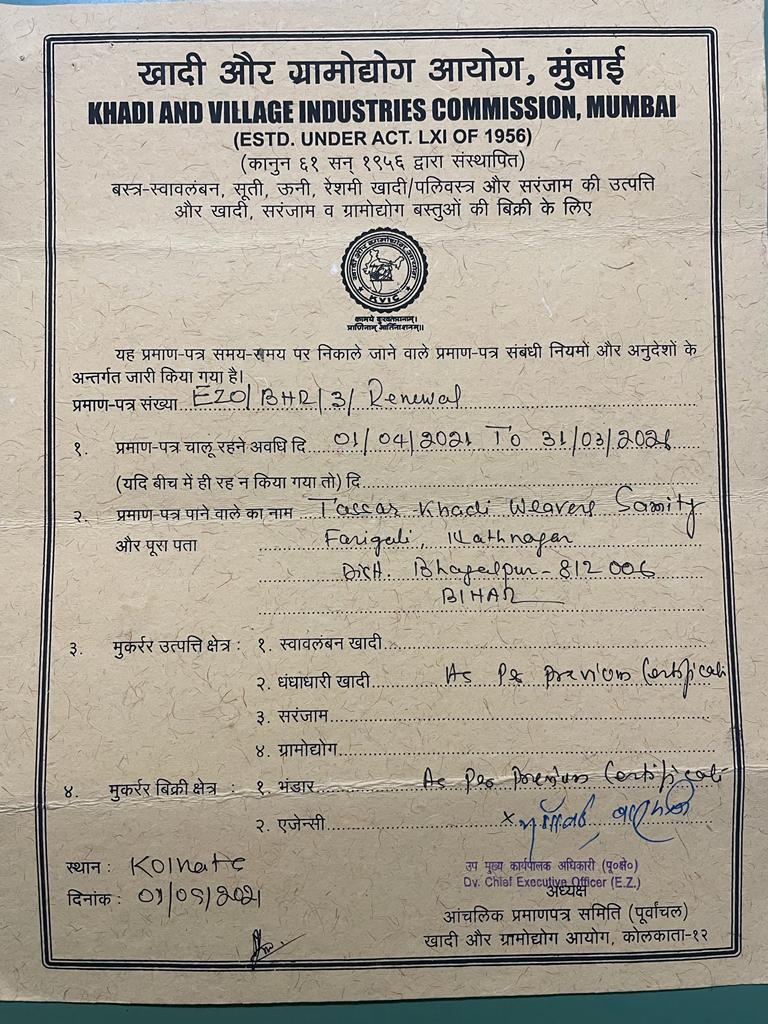 खादी और ग्रामोद्योग आयोग, मुंबाई
KHADI AND VILLAGE INDUSTRIES COMMISSION, MUMBAI
(ESTD. UNDER ACT. LXI OF 1956)
(कानुन ६१ सन् १९५६ द्वारा संस्थापित)
बस्त्र-स्वावलंबन, सूती, ऊनी, रेशमी खादी/पलिवस्त्र और सरंजाम की उत्पत्ति
और खादी, सरंजाम व ग्रामोद्योग बस्तुओं की बिक्री के लिए
खादी और ग्रामोद्योग आयोग
KVIC
यह प्रमाण-पत्र समय-समय पर निकाले जाने वाले प्रमाण-पत्र संबंधी नियमों और अनुदेशों के
अन्तर्गत जारी किया गया है।
प्रमाण-पत्र संख्या EZO/BHR/3/ Renewal
१. प्रमाण-पत्र चालू रहने अवधि दि 01/04/2021 To 31/03/2026
(यदि बीच में ही रह न किया गया तो) दि
२. प्रमाण-पत्र पाने वाले का नाम Tassar Khadi Weavers Samity
और पूरा पता Farigali, Nathnagar
Distt. Bhagalpur - 812 006
BIHAR
३. मुकर्रर उत्पत्ति क्षेत्र : १. स्वावलंबन खादी
२. धंधाधारी खादी As Per previous Certificate
३. सरंजाम
४. ग्रामोद्योग
४. मुकर्रर बिक्री क्षेत्र : १. भंडार As Per Previous Certificate
२. एजेन्सी
स्थान : Kolkata
दिनांक : /2021
उप मुख्य कार्यपालक अधिकारी (पू०क्षे०)
Dy. Chief Executive Officer (E.Z.)
अध्यक्ष
आंचलिक प्रमाणपत्र समिति (पूर्वांचल)
खादी और ग्रामोद्योग आयोग, कोलकाता-१२